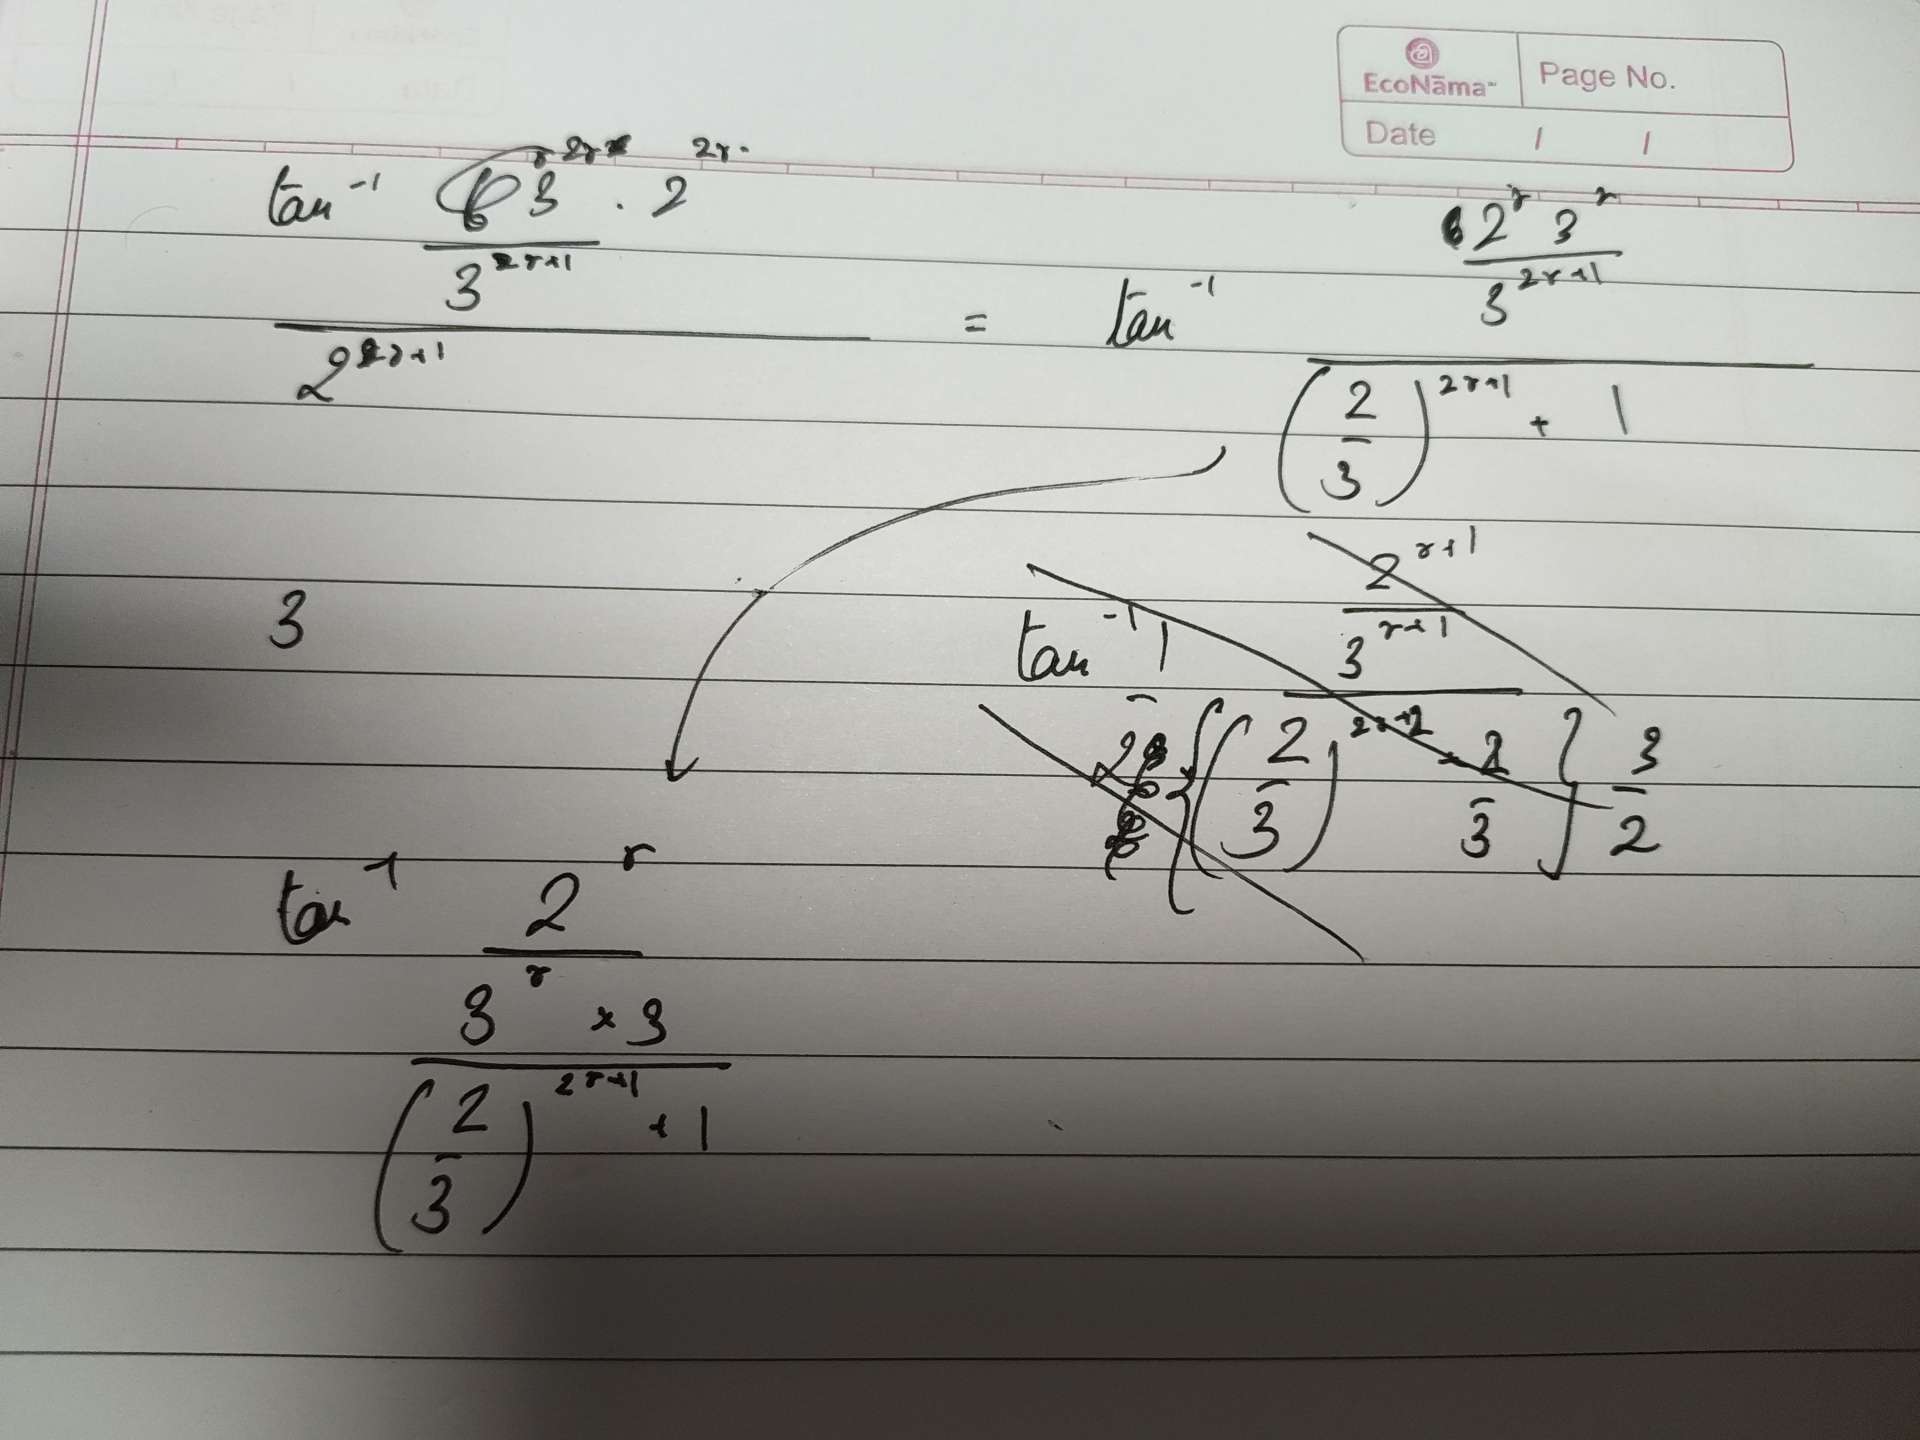 EcoNāma™ Page No.
Date / /
tan⁻¹ 3 . 2²ʳ
3²ʳ⁺¹
2²ʳ⁺¹
= tan⁻¹ 2ʳ 3ʳ
3²ʳ⁺¹
(2/3)²ʳ⁺¹ + 1
3
tan⁻¹ 1 2ʳ⁺¹
3ʳ⁺¹
{(2/3)²ʳ⁺² 2/3} 3/2
tan⁻¹ 2ʳ
3ʳ × 3
(2/3)²ʳ⁺¹ + 1